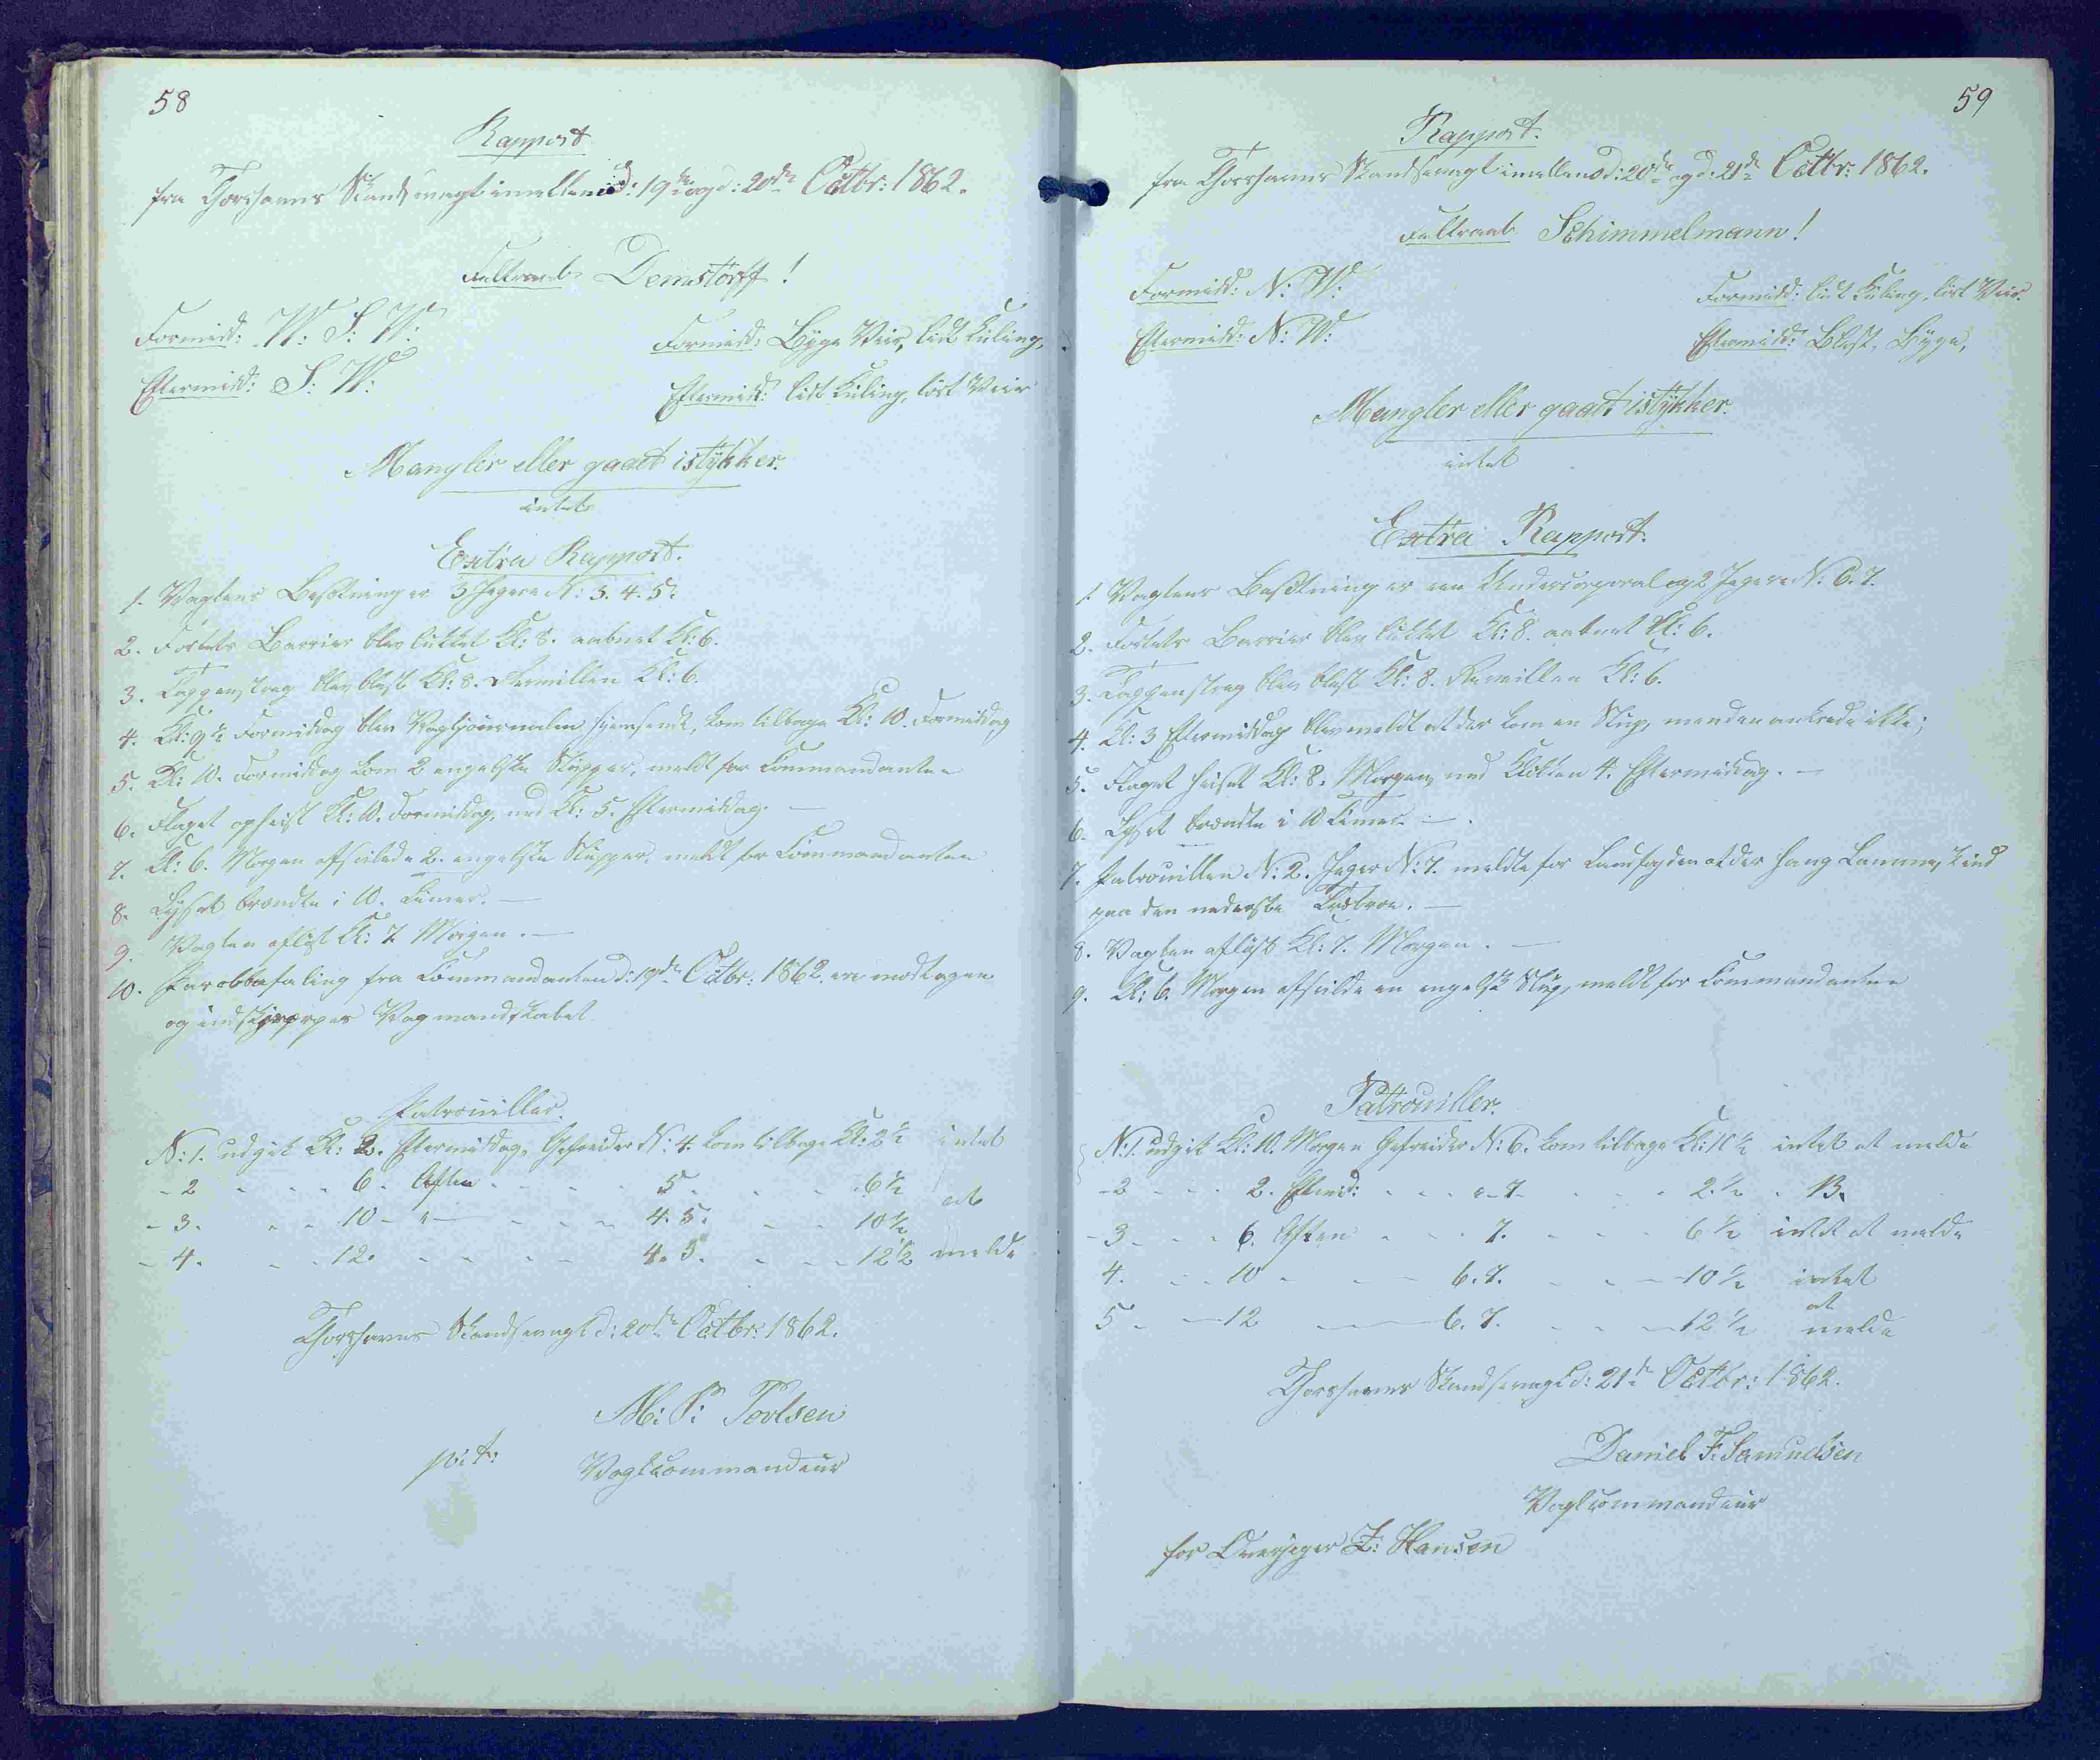 58
Rapport
fra Thorshavns Skandsevagt imellem d: 19de og d: 20de Octbr: 1862.
Feltraab Dernstorff!
Formidd: W: S: W:
Formidd: Byge Veir, lidt Kuling,
Eftermidd: S: W:
Eftermidd: lidt Kuling, löst Veir
Mangler eller gaaet istÿkker.
intet
Extra Rapport.
1. Vagtens Besætning er 3 Jegere N: 3. 4. 5.
2. Fortets Barrier blev lukket Kl: 8. aabnet Kl: 6.
3. Tappenstreg blev blæst Kl: 8. Revillen Kl: 6.
4. Kl: 9½ Formiddag blev Vagtjournalen hjemsendt, kom tilbage Kl: 10. Formiddag
5. Kl: 10. Formiddag kom 2 engelske Slupper, meldt for Commandanten
6. Flaget opheist Kl: 10. Formiddag, ned Kl: 5. Eftermiddag. —
7. Kl: 6. Morgen afseilede 2. engelske Slupper, meldt for Commandanten
8. Lyset brændte i 10. Timer. —
9. Vagten aflöst Kl: 7. Morgen. —
10. Parolbefaling fra Commandanten d: 19de Octbr: 1862. er modtagen
og indskjærpes Vagmandskabet
Patrouiller.
N: 1. udgik Kl: 2. Eftermiddag, Gefreider N: 4. kom tilbage Kl: 2½ intet
- 2 - - - 6. Aften - - - 5 - - - 6½ at
- 3. - - 10 - " - - - - 4. 5. - - 10½
- 4. - - 12. - - - - 4. 5. - - - 12½ melde
Thorshavns Skandsevagt d: 20de Octbr: 1862.
M: P: Poulsen
p: t: Vagtcommandeur
59
Rapport.
fra Thorshavns Skandsevagt imellem d: 20de og d: 21de Octbr: 1862.
Feltraab Schimmelmann!
Formidd: N: W:
Formidd: lidt Kuling, löst Veir.
Eftermidd: N: W:
Eftermidd: Blæst, Byge,
Mangler eller gaaet istÿkker.
intet
Extra Rapport.
1. Vagtens Besætning er en Undercorporal og 2 Jegere N: 6. 7.
2. Fortets Barrier blev lukket Kl: 8. aabnet Kl: 6.
3. Tappenstreg blev blæst Kl: 8. Revillen Kl: 6.
4. Kl: 3 Eftermiddag blev meldt at der kom en Slup, men den ankrede ikke;
5. Flaget heiset Kl: 8. Morgen, ned Klokken 4. Eftermiddag. —
6. Lyset brændte i 10 Timer. —
7. Patrouillen N: 2. Jeger N: 7. meldte for Landfogden at der hang Lamme,
paa den nederste —
8. Vagten aflöst Kl: 7. Morgen. —
9. Kl: 6. Morgen afseilede en engelsk Slup, meldt for Commandanten
Patrouiller.
N: 1. udgik Kl: 10. Morgen Gefreider N: 6. kom tilbage Kl: 10½ intet at melde
- 2 - - - 2. Efterm: - - - " - 7. - - - 2½ - 13.
- 3 - - - 6. Aften - - - 7. - - - 6½ intet at melde
4. - - 10 - - - 6. 7. - - - 10½ intet
5 - - 12 - - 6. 7. - - - 12½ at
melde
Thorshavns Skandsevagt d: 21de Octbr: 1862.
Daniel F. Samuelsen
Vagtcommandeur
for Overjeger Z: Hansen